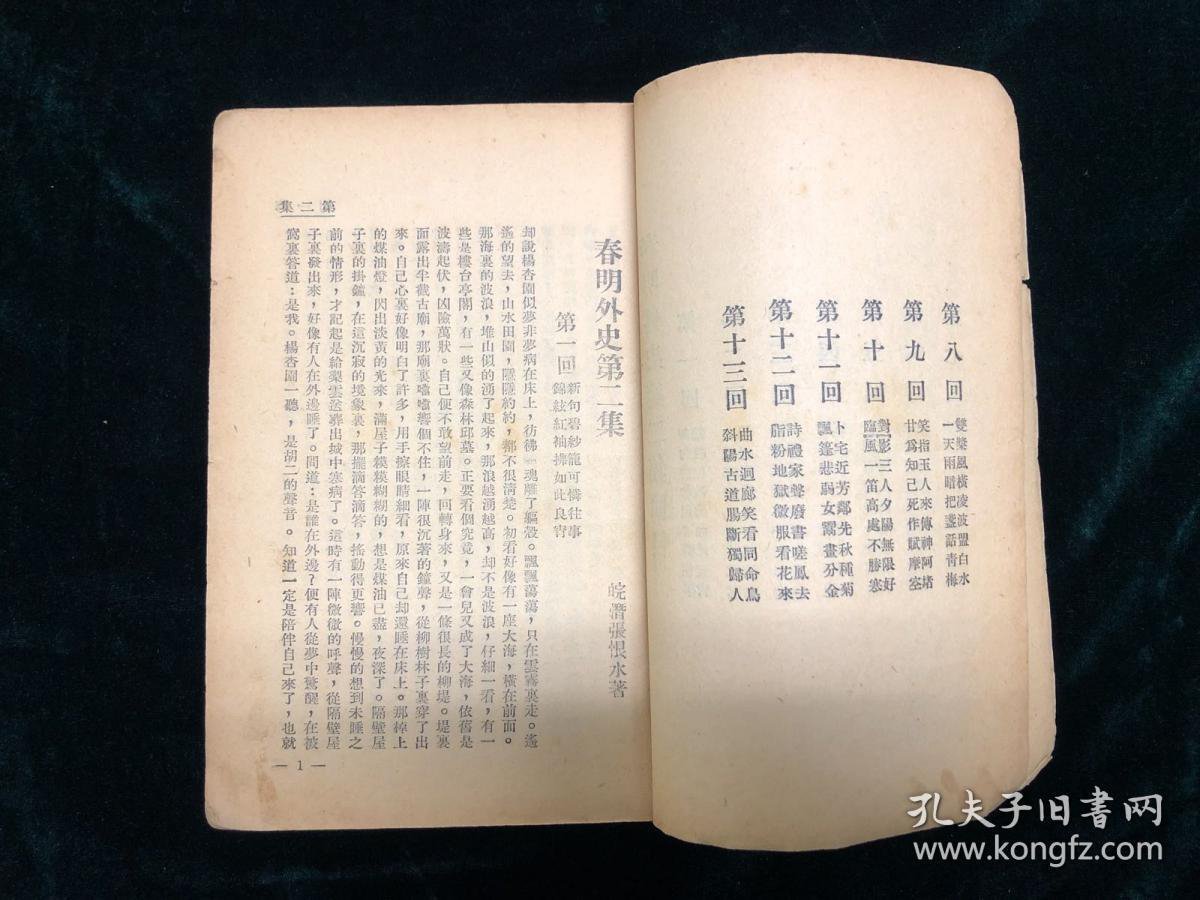 第八回
雙槳風橫凌波盟白水
一天雨暗把盞話靑梅
第九回
笑指玉人來傳神阿堵
甘爲知己死作賦摩空
第十回
對影三人夕陽無限好
臨風一笛高處不勝寒
第十一回
卜宅近芳鄰先秋種菊
飄篷悲弱女霧畫分金
第十二回
詩禮家聲廢書嗟鳳去
脂粉地獄微服看花來
第十三回
曲水迴廊笑看同命鳥
斜陽古道腸斷獨歸人
春明外史第二集
皖潛張恨水著
第一回
新句碧紗籠可憐往事
錦絃紅袖拂如此良宵
却說楊杏園似夢非夢病在床上，彷彿一魂離了軀殼。飄飄蕩蕩，只在雲霧裏走。遙
遙的望去，山水田園，隱隱約約，都不很清楚。初看好像有一座大海，橫在前面。
那海裏的波浪，堆山似的湧了起來，那浪越湧越高，却不是波浪，仔細一看，有一
些是樓台亭閣，有一些又像森林邱墓。正要看個究竟，一會兒又成了大海，依舊是
波濤起伏，凶險萬狀。自己便不敢望前走，回轉身來，又是一條很長的柳堤。堤裏
面露出半截古廟，那廟裏噹噹響個不住，一陣很沉著的鐘聲，從柳樹林子裏穿了出
來。自己心裏好像明白了許多，用手擦眼睛細看，原來自己却還睡在床上。那棹上
的煤油燈，閃出淡黃的光來，滿屋子糢糢糊糊的，想是煤油已盡，夜深了。隔壁屋
子裏的掛鐘，在這沉寂的境象裏，那擺滴答滴答，搖動得更響。慢慢的想到未睡之
前的情形，才記起是給棃雲送葬出城中寒病了。這時有一陣微微的呼聲，從隔壁屋
子裏發出來，好像有人在外邊睡了。問道：是誰在外邊？便有人從夢中驚醒，在被
窩裏答道：是我。楊杏園一聽，是胡二的聲音。知道一定是陪伴自己來了，也就
第二集
— 1 —
孔夫子旧书网
www.kongfz.com